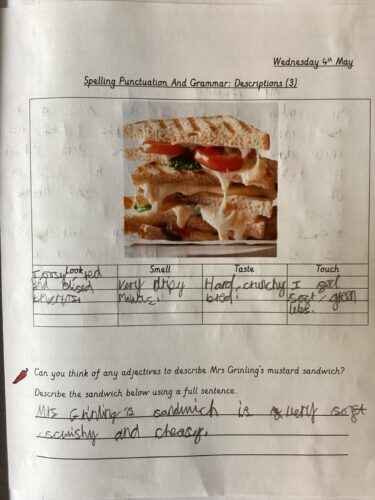 Wednesday 4th May
Spelling Punctuation And Grammar: Descriptions (3)
Look Smell Taste Touch
very Hard, crunchy I
and
Can you think of any adjectives to describe Mrs Grinling's mustard sandwich?
Describe the sandwich below using a full sentence.
Mrs Grinling's sandwich is very soft
squishy and cheasy.